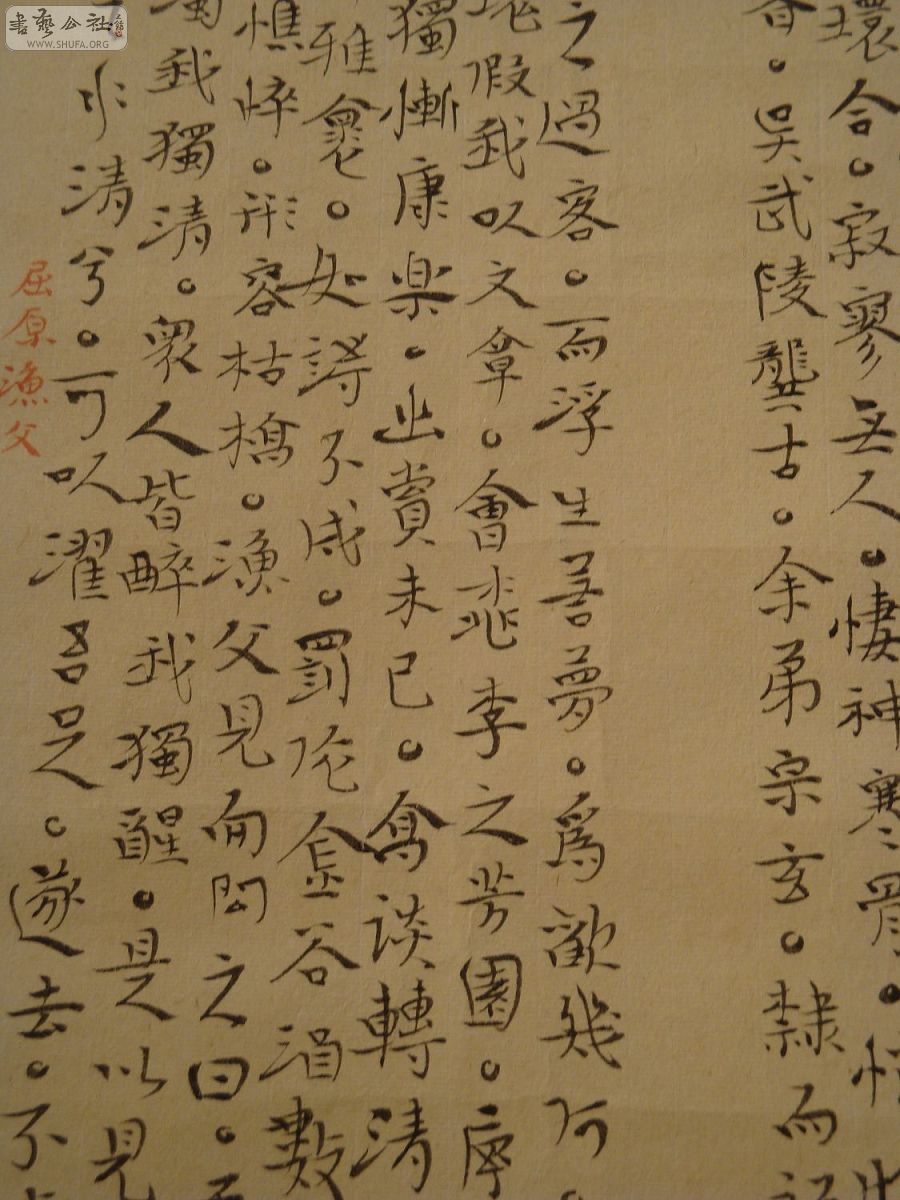 環合。寂寥无人。悽神寒骨。悄
。吳武陵龔古。余弟宗玄。隸而
之過客。而浮生若夢。爲歡幾何。
塊假我以文章。會桃李之芳園。序
獨慚康樂。幽賞未已。高談轉清
雅懷。如詩不成。罰依金谷酒數
憔悴。形容枯槁。漁父見而問之曰。
我獨清。衆人皆醉我獨醒。是以見
水清兮。可以濯吾足。遂去。不
屈原漁父
書藝公社
WWW.SHUFA.ORG